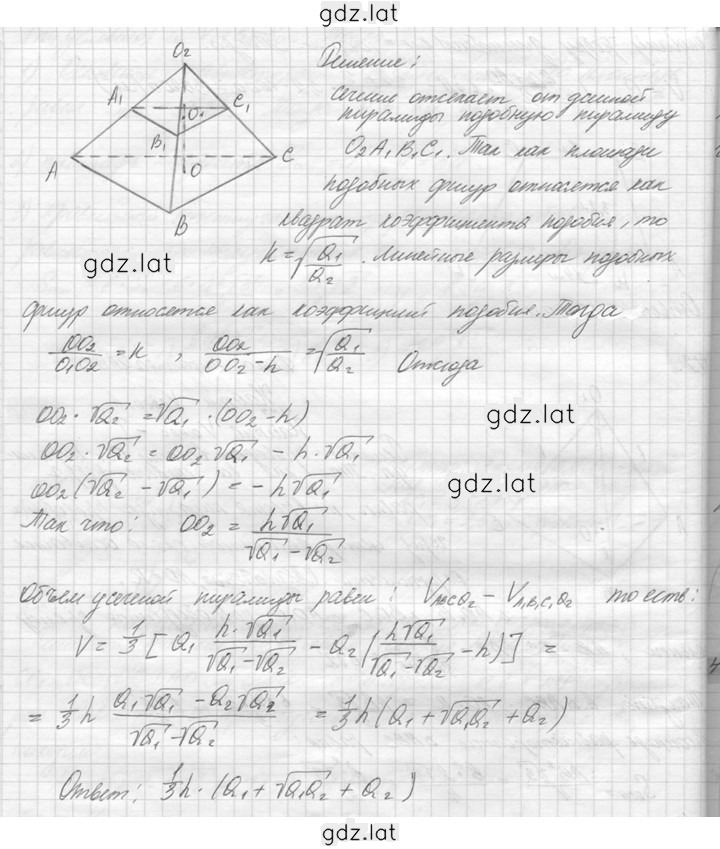 gdz.lat
O₂
A₁ O₁ C₁
B₁
A O C
B
Решение:
сечение отсекает от данной
пирамиды подобную пирамиду
O₂A₁B₁C₁. Так как площади
подобных фигур относятся как
квадрат коэффициента подобия, то
gdz.lat
k = √(Q₁/Q₂). Линейные размеры подобных
фигур относятся как коэффициент подобия. Тогда
OO₂/O₁O₂ = k , OO₂/(OO₂-h) = √(Q₁/Q₂) Отсюда
OO₂·√Q₂ = √Q₁·(OO₂-h)
gdz.lat
OO₂·√Q₂ = OO₂√Q₁ - h·√Q₁
OO₂(√Q₂ - √Q₁) = -h√Q₁
gdz.lat
Так что: OO₂ = h√Q₁/(√Q₁-√Q₂)
Объем усеченой пирамиды равен: V - V то есть:
V = 1/3 [Q₁ h·√Q₁/(√Q₁-√Q₂) - Q₂(h√Q₁/(√Q₁-√Q₂) - h)] =
= 1/3 h (Q₁√Q₁ - Q₂√Q₂)/(√Q₁-√Q₂) = 1/3 h (Q₁ + √Q₁Q₂ + Q₂)
Ответ: 1/3 h·(Q₁ + √Q₁Q₂ + Q₂)
gdz.lat